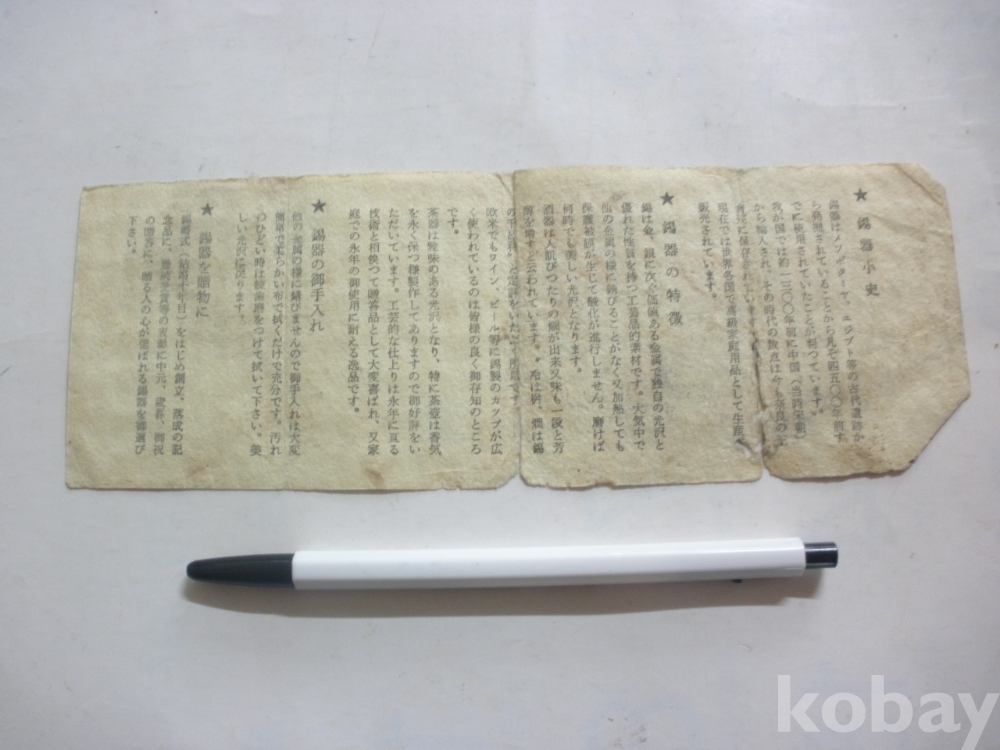 ★ 錫器小史
錫器はメソポタミヤ、エジプト等の古代遺跡か
ら発掘されていることから凡そ四五〇〇年前す
でに使用されていたことが判っています。
我が国では約一三〇〇年前に中国
から輸入され、その時代の数点は今も奈良の正
倉院に保存されて
現在では世界各国で高級家庭用品として生産、
販売されています。
★ 錫器の特徴
錫は金、銀に次ぐ価値ある金属で独自の光沢と
優れた性質を持つ工芸品的素材です。大気中で
他の金属の様に錆びることがなく又加熱しても
保護被膜が生じて酸化が進行しません。磨けば
何時でも美しい光沢となります。
酒器は人肌ぴつたりの燗が出来又味も一段と芳
醇を増すと云われています。〝冷は桝、燗は錫
欧米でもワイン、ビール等に錫製のカップが広
く使われているのは皆様の良く御存知のところ
です。
茶器は雅味のある光沢となり、特に茶壺は香気
を永く保つ様製作してありますので御好評をい
ただいています。工芸的な仕上りは永年に亘る
技術と相俟つて贈答品として大変喜ばれ、又家
庭での永年の御使用に耐える逸品です。
★ 錫器の御手入れ
他の金属の様に錆びませんので御手入れは大変
簡単で柔らかい布で拭くだけで充分です。汚れ
のひどい時は歯磨粉をつけて拭いて下さい。美
しい光沢に戻ります。
★ 錫器を贈物に
錫婚式(結婚十年目)をはじめ創立、落成の記
念品に、勝杯賞等の表彰に中元、歳暮、御祝
の贈答に、贈る人の心が偲ばれる錫器を御選び
下さい。
kobay